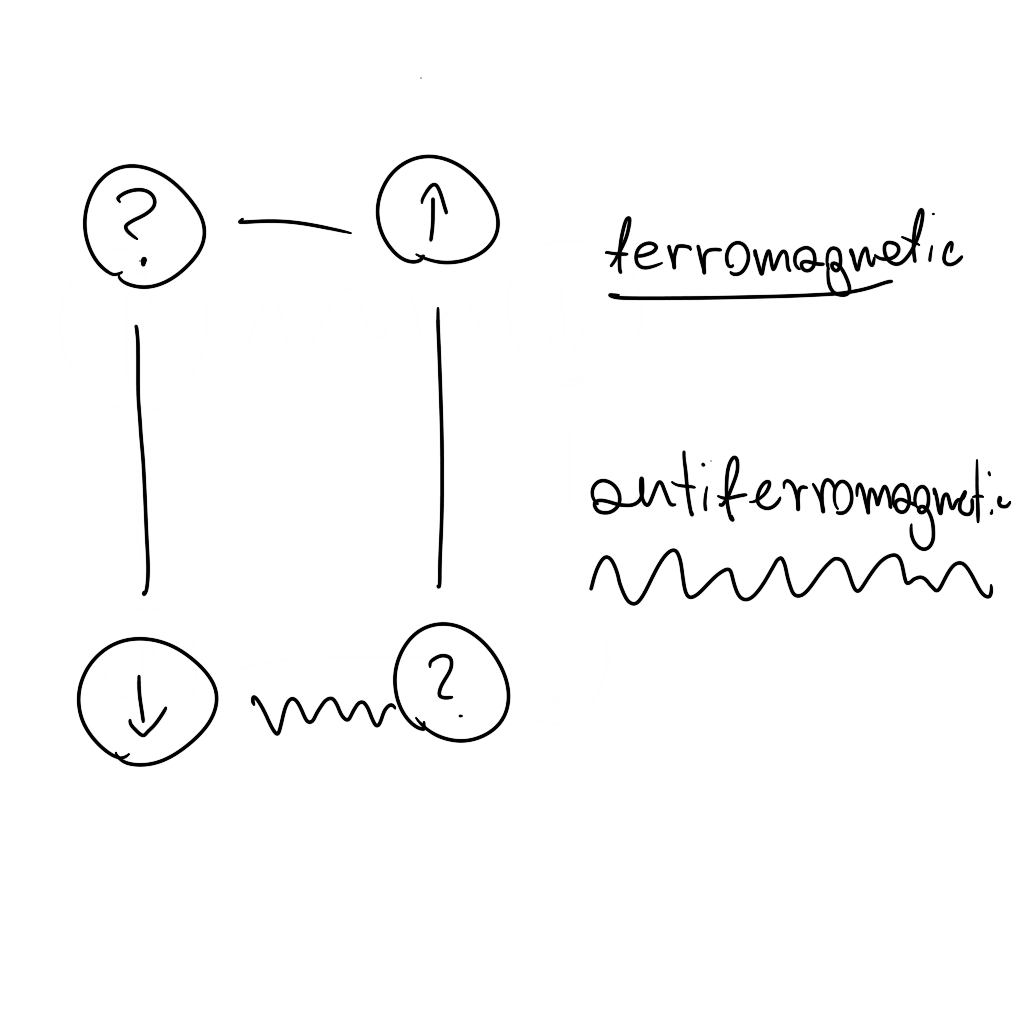 ? ↑
ferromagnetic
antiferromagnetic
↓ ?